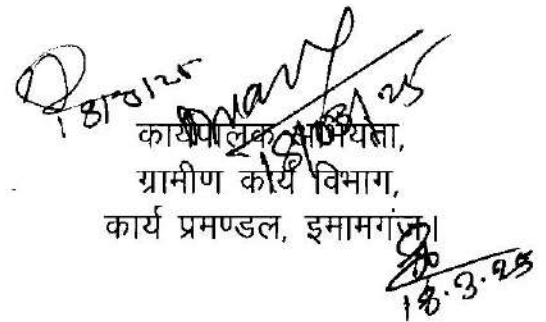 18/3/25
18/03/25
कार्यपालक अभियंता,
ग्रामीण कार्य विभाग,
कार्य प्रमण्डल, इमामगंज।
18.3.25